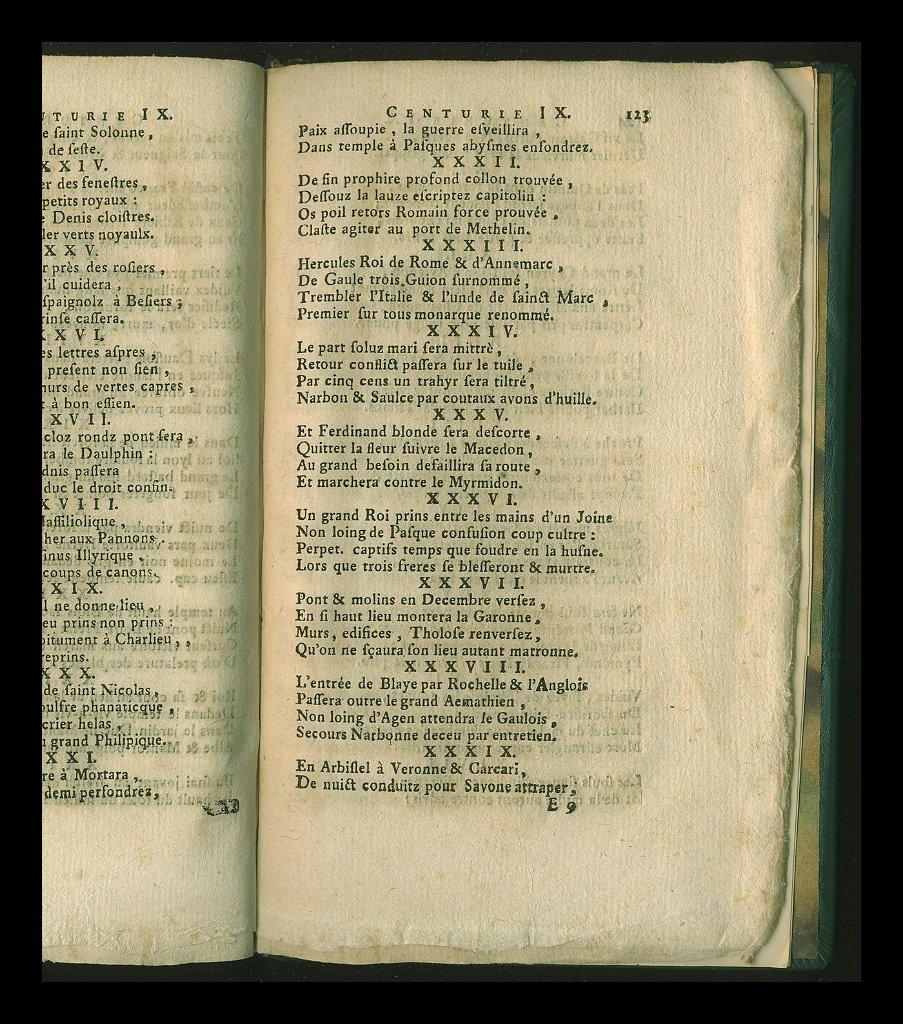 TURIE IX.
e ſaint Solonne,
de ſeſte.
XXIV.
er des feneſtres,
petits royaux :
Denis cloiſtres.
ler verts noyaulx.
XXV.
r près des roſiers,
'il cuidera,
ſpaignolz à Beſiers ;
rinſe caſſera.
XVI.
es lettres aſpres,
preſent non ſien,
urs de vertes capres,
à bon eſſien.
XVII.
cloz rondz pont ſera,
ra le Daulphin :
dnis paſſera
duc le droit confin.
XVIII.
aſſiliolique,
her aux Pannons.
ſinus Illyrique,
coups de canons.
XIX.
l ne donne lieu,
eu prins non prins :
bitument à Charlieu,
reprins.
XXX.
de ſaint Nicolas,
oulfre phanaticque,
crier helas,
grand Philipique.
XXI.
re à Mortara,
demi perfondrez,
CENTURIE IX. 123
Paix aſſoupie, la guerre eſveillira,
Dans temple à Paſques abyſmes enfondrez.
XXXII.
De fin prophire profond collon trouvée,
Deſſouz la lauze eſcriptez capitolin :
Os poil retors Romain force prouvée,
Claſte agiter au port de Methelin.
XXXIII.
Hercules Roi de Rome & d'Annemarc,
De Gaule trois Guion ſurnommé,
Trembler l'Italie & l'unde de ſainct Marc,
Premier ſur tous monarque renommé.
XXXIV.
Le part ſoluz mari ſera mittré,
Retour conflict paſſera ſur le tuile,
Par cinq cens un trahyr ſera tiltré,
Narbon & Saulce par coutaux avons d'huille.
XXXV.
Et Ferdinand blonde ſera deſcorte,
Quitter la fleur ſuivre le Macedon,
Au grand beſoin defaillira ſa route,
Et marchera contre le Myrmidon.
XXXVI.
Un grand Roi prins entre les mains d'un Joine
Non loing de Paſque confuſion coup cultre :
Perpet. captifs temps que foudre en la huſne.
Lors que trois freres ſe bleſſeront & murtre.
XXXVII.
Pont & molins en Decembre verſez,
En ſi haut lieu montera la Garonne,
Murs, edifices, Tholoſe renverſez,
Qu'on ne ſçaura ſon lieu autant matronne.
XXXVIII.
L'entrée de Blaye par Rochelle & l'Anglois
Paſſera outre le grand Aemathien,
Non loing d'Agen attendra le Gaulois,
Secours Narbonne deceu par entretien.
XXXIX.
En Arbiſſel à Veronne & Carcari,
De nuict conduitz pour Savone attraper,
E 9